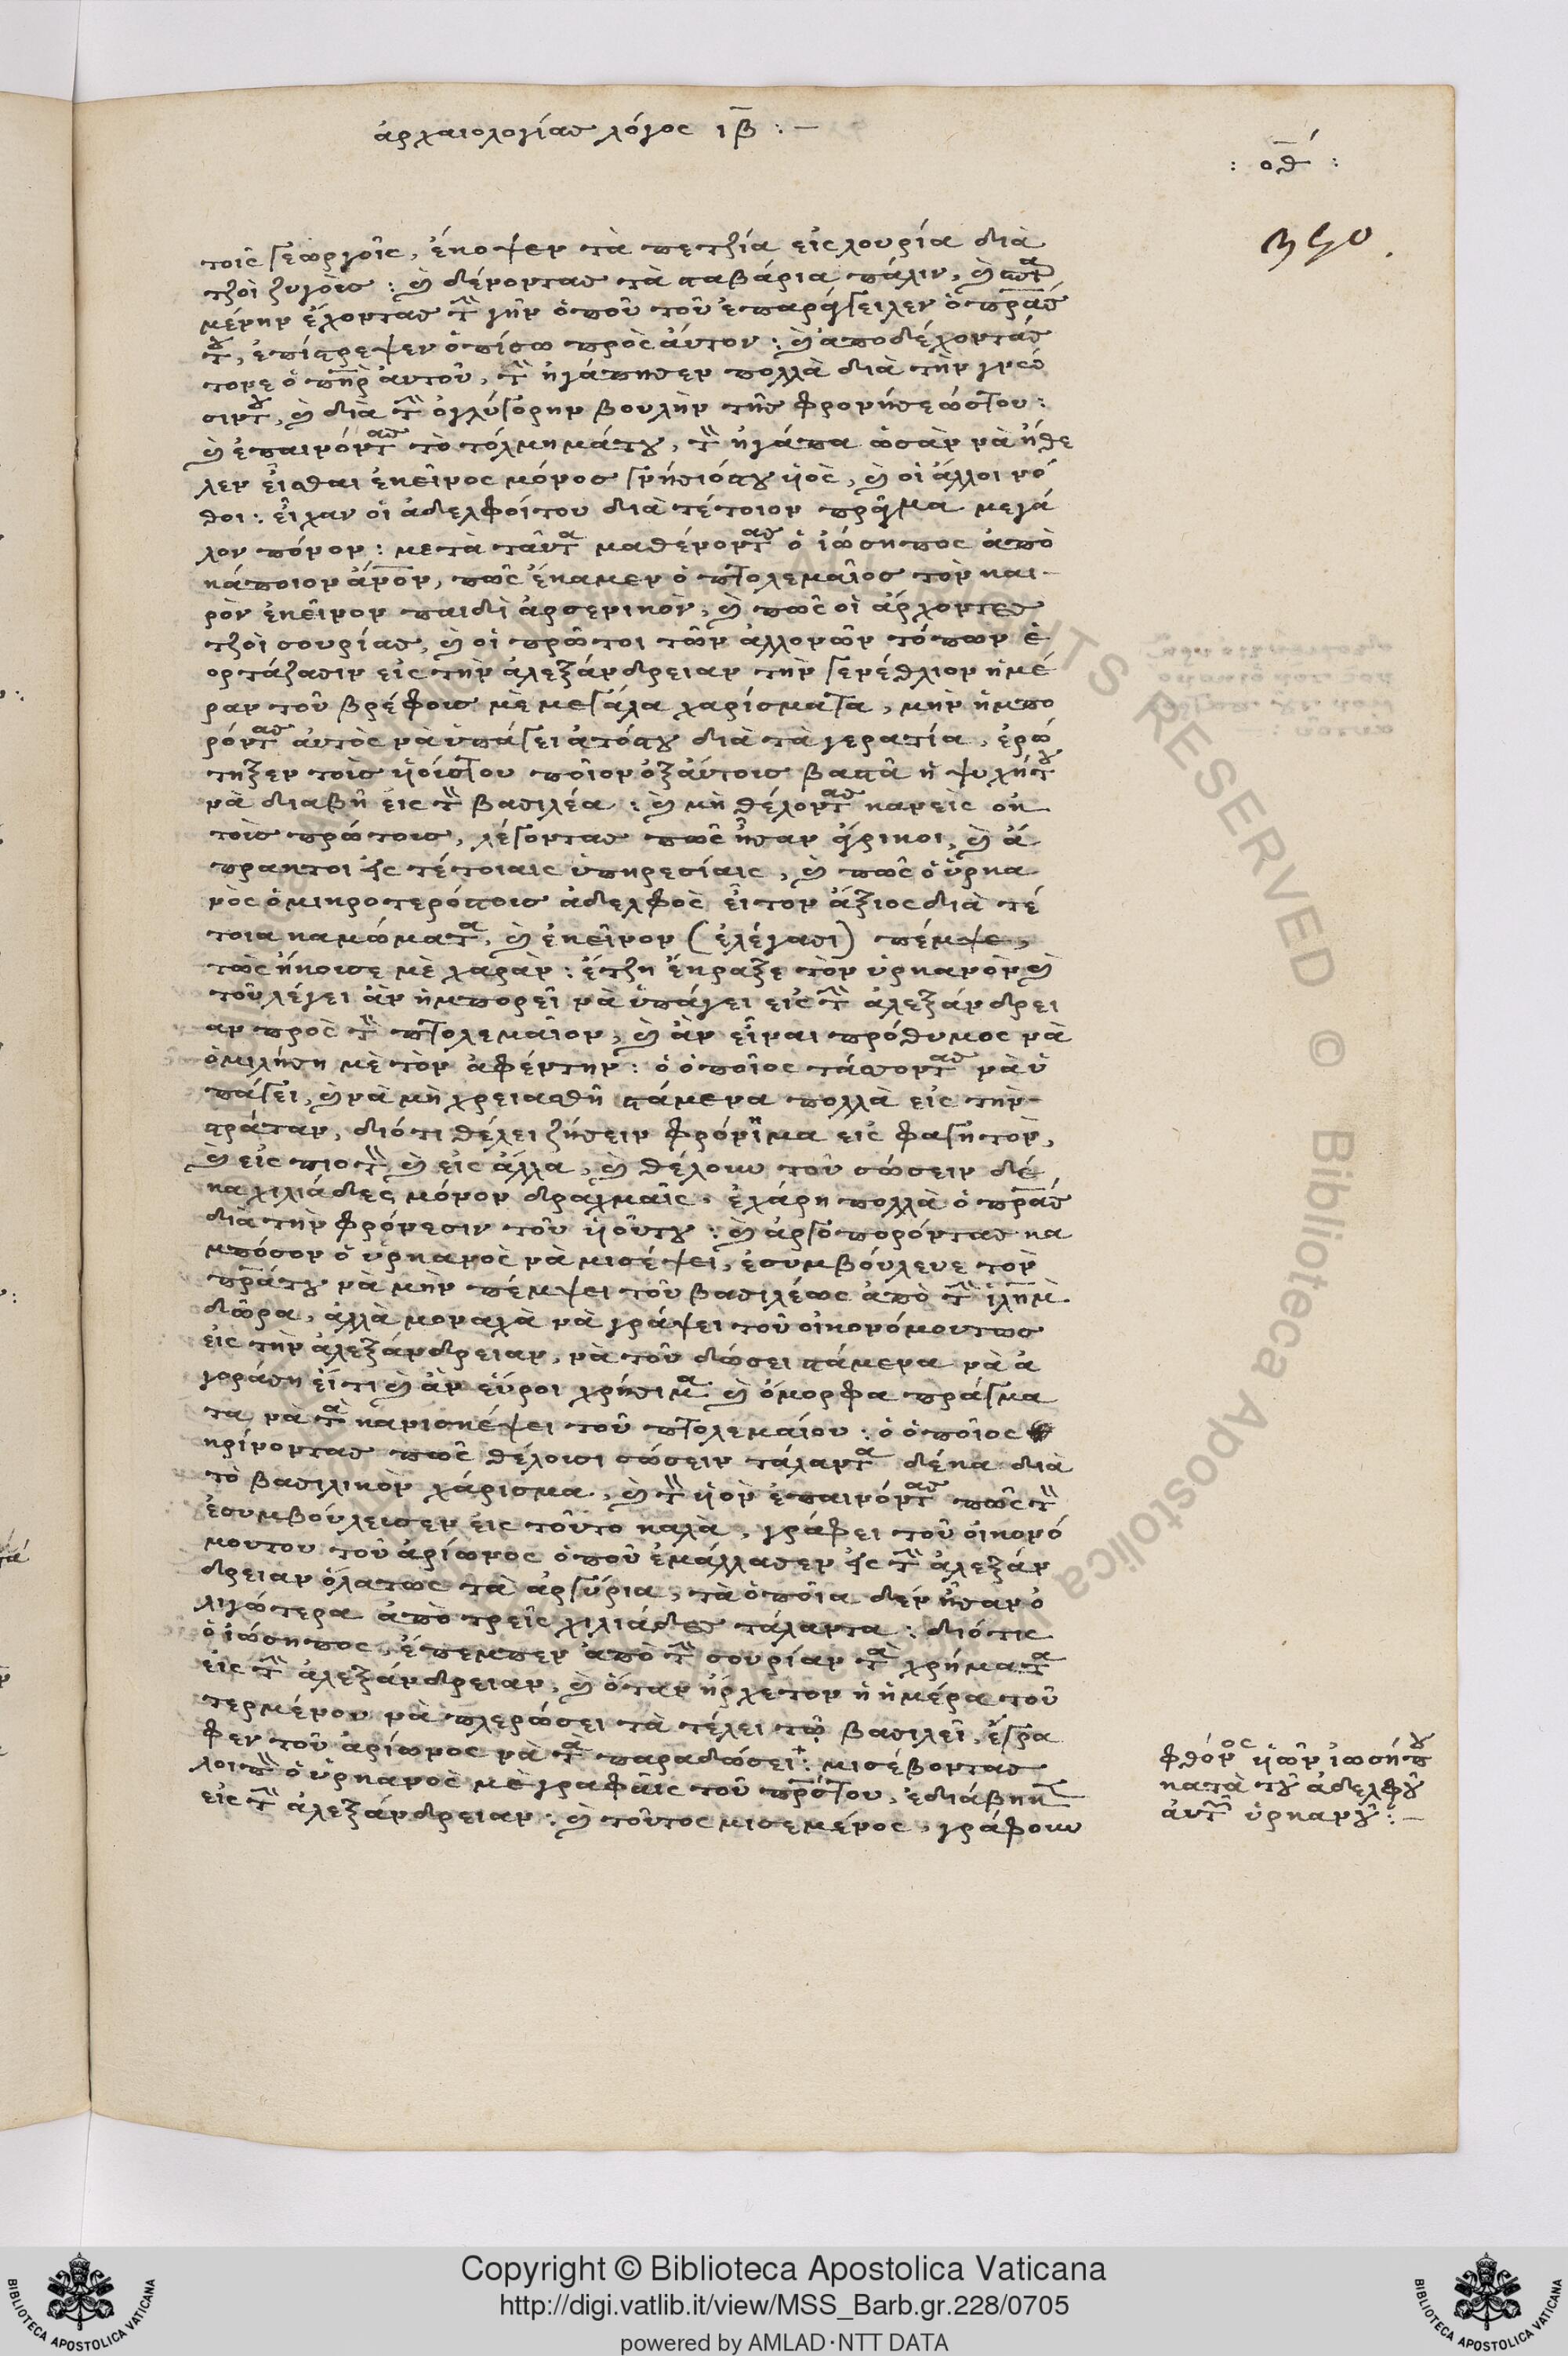 ἀρχαιολογίας λόγος ιβ : —
: οθ :
350.
τοῖς γεωργοῖς, ἔκοψεν τὰ πετζία εἰς λουρία διὰ
τζοὶ ζυγοὺς : ϗ δένοντας τὰ σταβάρια πάλιν, ϗ
μένην ἔχοντας τ̀ γῆν ὁποῦ τοῦ ἐπαράγγειλεν ὁ π̅ρ̅ας
τ, ἐπίστρεψεν ὀπίσω πρὸς αὐτον : ϗ αποδέχοντάς
τονε ὁ π̅η̅ρ αυτοῦ, τ̀ ἠγάπησεν πολλὰ διὰ τὴν γνῶ
σιντȣ, ϗ διὰ τ̀ ὀγλύγορην βουλὴν τῆς φρονήσεώςτου :
ϗ ἐπαινόντας τὸ τόλμημάτȣ, τ̀ ἠγάπα ὡσὰν νὰ ἤθε
λεν εἶσθαι ἐκεῖνος μόνος γνήσιόςτȣ ὑιὸς, ϗ οἱ ἄλλοι νό
θοι : εἶχαν οἱ ἀδελφοίτου διὰ τέτοιον πρᾶγμα μεγά
λον πόνον : μετὰ ταῦτα μαθένοντας ὁ ἰώσηπος ἀπὸ
κάποιον ἄ̅ν̅ον, πῶς ἔκαμεν ὁ πτολεμαῖος τὸν και
ρὸν ἐκεῖνον παιδὶ ἀρσενικὸν, ϗ πῶς οἱ ἄρχοντες
τζοὶ σουρίας, ϗ οἱ πρῶτοι τῶν ἀλλονῶν τόπων ἑ
ορτάζασιν εἰς τὴν ἀλεξάνδρειαν τὴν γενέθλιον ἡμέ
ραν τοῦ βρέφους μὲ μεγάλα χαρίσματα, μὴν ἡμπο
ρόντας αὐτὸς νὰ ὑπάγει ἀτόςτȣ διὰ τὰ γερατία, ἐρώ
τηξεν τοὺς ὑιούςτου ποῖον ὀξάυτους βαστᾶ ἡ ψυχήτȣ
νὰ διαβῆ εἰς τ̀ βασιλέα : ϗ μὴ θέλοντας κανεὶς ὀκ
τοὺς πρώτους, λέγοντας πῶς ἦσαν ἄγρικοι, ϗ ἄ
πρακτοι εἰς τέτοιαις ὑπηρεσίαις, ϗ πῶς ὁ ὑρκα
νὸς ὁ μικροτερόστους ἀδελφὸς εἶτον ἄξιος διὰ τέ
τοια καμώματα, ϗ ἐκεῖνον (ἐλέγασι) πέμψε,
τὼς ἤκουσε μὲ χαρὰν : ἔτζη ἔκραξε τὸν ὑρκανὸν ϗ
τοῦ λέγει ἂν ἡμπορεῖ νὰ ὑπάγει εἰς τ̀ ἀλεξάνδρει
αν πρὸς τ̀ πτολεμαῖον, ϗ ἂν εἶναι πρόθυμος νὰ
ὁμιλήση μὲ τὸν ἀφέντην : ὁ ὁποῖος τάσσοντας νὰ ὑ
πάγει, ϗ νὰ μὴ χρειασθῆ στάμενα πολλὰ εἰς τὴν
στράταν, διότι θέλει ζήσειν φρόνιμα εἰς φαγητὸν,
ϗ εἰς πιοτ̀ ϗ εἰς ἄλλα, ϗ θέλουν τοῦ σώσειν δέ
κα χιλιάδες μόνον δραχμαῖς. ἐχάρη πολλὰ ὁ π̅ρ̅ας
διὰ τὴν φρόνεσιν τοῦ ὑιοῦτȣ : ϗ ἀργοπορόντας κα
μπόσον ὁ ὑρκανὸς νὰ μισέψει, ἐσυμβόυλευε τὸν
π̅ρ̅άτȣ νὰ μὴν πέμψει τοῦ βασιλέως ἀπὸ τ̀ ἱλημ
δῶρα, ἀλλὰ μοναχὰ νὰ γράψει τοῦ οἰκονόμουτως
εἰς τὴν ἀλεξάνδρειαν, νὰ τοῦ δώσει στάμενα νὰ ἀ
γοράση εἴτι ϗ ἂν εὕροι χρήσιμα ϗ ὄμορφα πράγμα
τα, νὰ τὰ κανισκέψει τοῦ πτολεμαίου : ὁ ὁποῖος
κρίνοντας πῶς θέλουσι σώσειν τάλαντα δέκα διὰ
τὸ βασιλικὸν χάρισμα, ϗ τ̀ ὑιὸν ἐπαινόντας πῶς τ̀
ἐσυμβόυλευσεν εἰς τοῦτο καλὰ, γράφει τοῦ οἰκονό
μουτου τοῦ ἀρίωνος ὁποῦ ἐμάλλασεν εἰς τ̀ ἀλεξάν
δρειαν ὅλατως τὰ ἀργύρια, τὰ ὁποῖα δὲν ἦσαν ὀ
λιγώτερα ἀπὸ τρεῖς χιλιάδες τάλαντα : διότις
ὁ ἰώσηπος, ἔπεμπεν ἀπὸ τ̀ σουρίαν τὰ χρήματα
εἰς τ̀ ἀλεξάνδρειαν, ϗ ὅταν ἤρχετον ἡ ἡμέρα τοῦ
τερμένου νὰ πλερώσει τὰ τέλει τῶ βασιλεῖ, ἔγρα
φεν τοῦ ἀρίωνος νὰ τὰ παραδώσει : μισέβοντας
λοιπ̀ ὁ ὑρκανὸς μὲ γραφαῖς τοῦ π̅ρ̅όςτου, ἐδιάβηκ
εἰς τ̀ ἀλεξάνδρειαν : ϗ τοῦτος μισεμένος, γράφουν
φθόνος ὑιῶν ἰωσήπȣ
κατὰ τȣ͂ ἀδελφȣ͂
ἀυτῶν ὑρκανȣ͂ : —
Copyright © Biblioteca Apostolica Vaticana
http://digi.vatlib.it/view/MSS_Barb.gr.228/0705
powered by AMLAD·NTT DATA
BIBLIOTECA APOSTOLICA VATICANA
BIBLIOTECA APOSTOLICA VATICANA